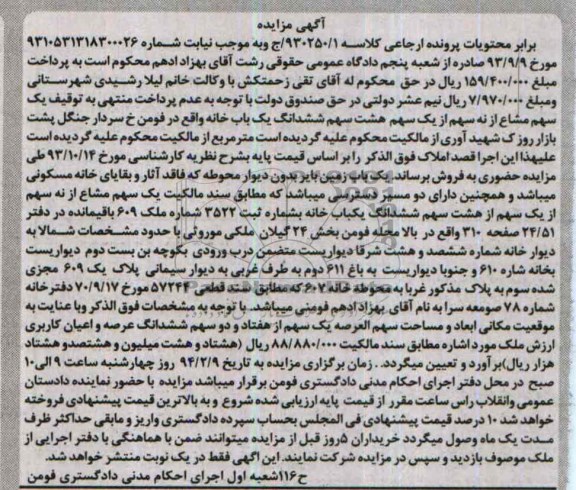 آگهی مزایده
برابر محتویات پرونده ارجاعی کلاسه ۹۳۰۲۵۰/۱/ج وبه موجب نیابت شماره ۹۳۱۰۵۳۱۳۱۸۳۰۰۰۲۶
مورخ ۹۳/۹/۹ صادره از شعبه پنجم دادگاه عمومی حقوقی رشت آقای بهزاد ادهم محکوم است به پرداخت
مبلغ ۱۵۹/۴۰۰/۰۰۰ ریال در حق محکوم له آقای تقی زحمتکش با وکالت خانم لیلا رشیدی شهرستانی
ومبلغ ۷/۹۷۰/۰۰۰ ریال نیم عشر دولتی در حق صندوق دولت با توجه به عدم پرداخت منتهی به توقیف یک
سهم مشاع از نه سهم از یک سهم هشت سهم ششدانگ یک باب خانه واقع در فومن خ سردار جنگل پشت
بازار روز ک شهید آوری از مالکیت محکوم علیه گردیده است مترمربع از مالکیت محکوم علیه گردیده است
علیهذا این اجرا قصد املاک فوق الذکر را بر اساس قیمت پایه بشرح نظریه کارشناسی مورخ ۹۳/۱۰/۱۴ طی
مزایده حضوری به فروش برساند. یکباب زمین بایر بدون دیوار محوطه که فاقد آثار و بقایای خانه مسکونی
میباشد و همچنین دارای دو مسیر دسترسی میباشد که مطابق سند مالکیت یک سهم مشاع از نه سهم
از یک سهم از هشت سهم ششدانگ یکباب خانه بشماره ثبت ۳۵۲۲ شماره ملک ۶۰۹ باقیمانده در دفتر
۲۴/۵۱ صفحه ۳۱۰ واقع در بالا محله فومن بخش ۲۴ گیلان ملکی موروثی با حدود مشخصات شمالا به
دیوار خانه شماره ششصد و هشت شرقا دیواریست متضمن درب ورودی بکوچه بن بست دوم دیواریست
بخانه شماره ۶۱۰ و جنوبا دیواریست به باغ ۶۱۱ دوم به طرف غربی به دیوار سیمانی پلاک یک ۶۰۹ مجزی
شده سوم به پلاک مذکور غربا به محوطه خانه ۶۰۷ که مطابق سند قطعی ۵۷۲۴۴ مورخ ۷۰/۹/۱۷ دفترخانه
شماره ۷۸ صومعه سرا به نام آقای بهزاد ادهم فومنی میباشد. با توجه به مشخصات فوق الذکر وبا عنایت به
موقعیت مکانی ابعاد و مساحت سهم العرصه یک سهم از هفتاد و دو سهم ششدانگ عرصه و اعیان کاربری
ارزش ملک مورد اشاره مطابق سند مالکیت ۸۸/۸۸۰/۰۰۰ ریال (هشتاد و هشت میلیون و هشتصدو هشتاد
هزار ریال)برآورد و تعیین میگردد. . زمان برگزاری مزایده به تاریخ ۹۴/۲/۹ روز چهارشنبه ساعت ۹ الی۱۰
صبح در محل دفتر اجرای احکام مدنی دادگستری فومن برقرار میباشد مزایده با حضور نماینده دادستان
عمومی وانقلاب راس ساعت مقرر از قیمت پایه ارزیابی شده شروع و به بالاترین قیمت پیشنهادی فروخته
خواهد شد ۱۰ درصد قیمت پیشنهادی فی المجلس بحساب سپرده دادگستری واریز و مابقی حداکثر ظرف
مدت یک ماه وصول میگردد خریداران ۵روز قبل از مزایده میتوانند ضمن با هماهنگی با دفتر اجرایی از
ملک موصوف بازدید و سپس در مزایده شرکت نمایند. این آگهی فقط در یک نوبت منتشر خواهد شد.
ح۱۱۶شعبه اول اجرای احکام مدنی دادگستری فومن